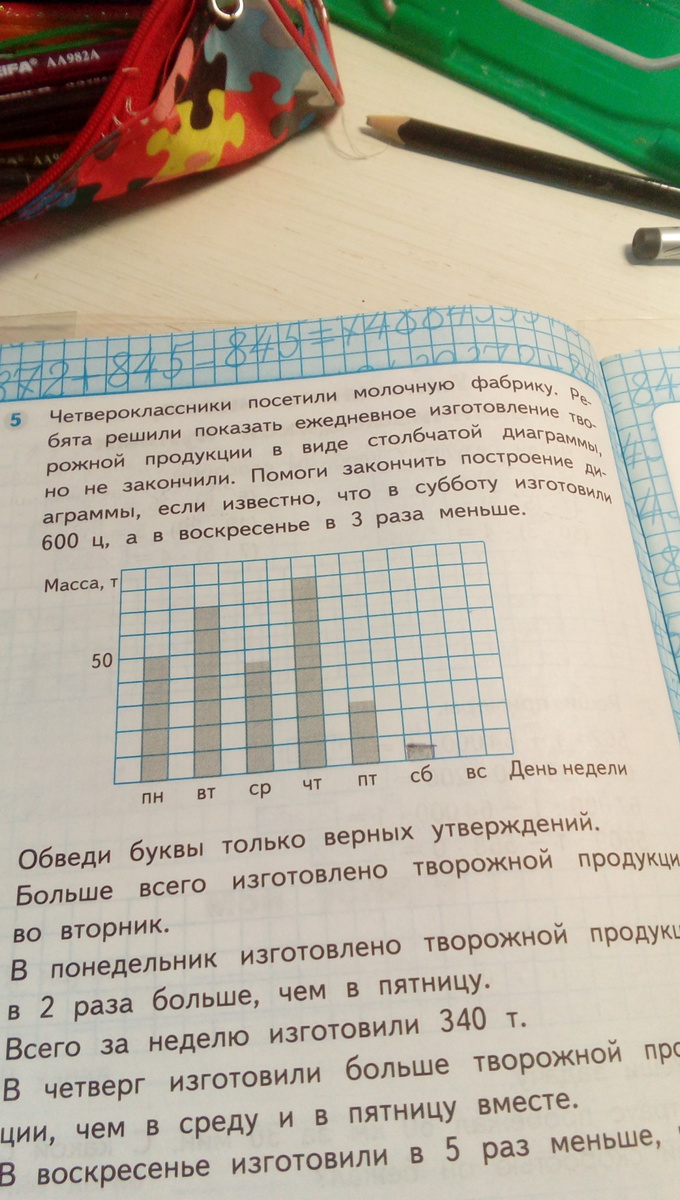 EIFA® AA982A
372+845-845=
5 Четвероклассники посетили молочную фабрику. Ре-
бята решили показать ежедневное изготовление тво-
рожной продукции в виде столбчатой диаграммы,
но не закончили. Помоги закончить построение ди-
аграммы, если известно, что в субботу изготовили
600 ц, а в воскресенье в 3 раза меньше.
Масса, т
50
пн вт ср чт пт сб вс День недели
Обведи буквы только верных утверждений.
Больше всего изготовлено творожной продукци
во вторник.
В понедельник изготовлено творожной продукц
в 2 раза больше, чем в пятницу.
Всего за неделю изготовили 340 т.
В четверг изготовили больше творожной про
ции, чем в среду и в пятницу вместе.
В воскресенье изготовили в 5 раз меньше,